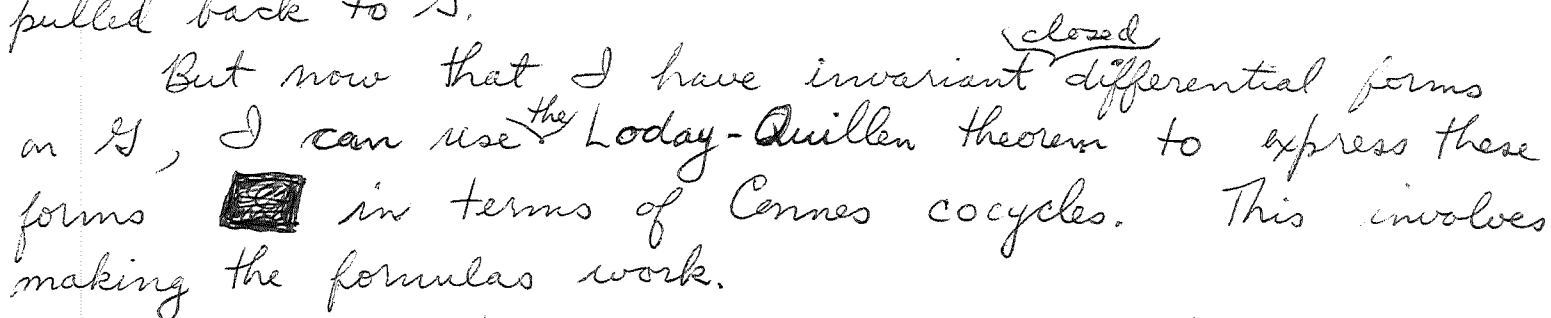 pulled back to 𝒢.
But now that I have invariant closed differential forms
on 𝒢, I can use the Loday-Quillen theorem to express these
forms in terms of Connes cocycles. This involves
making the formulas work.